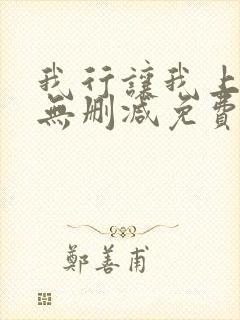 我行讓我上
無刪减免費
鄭善甫